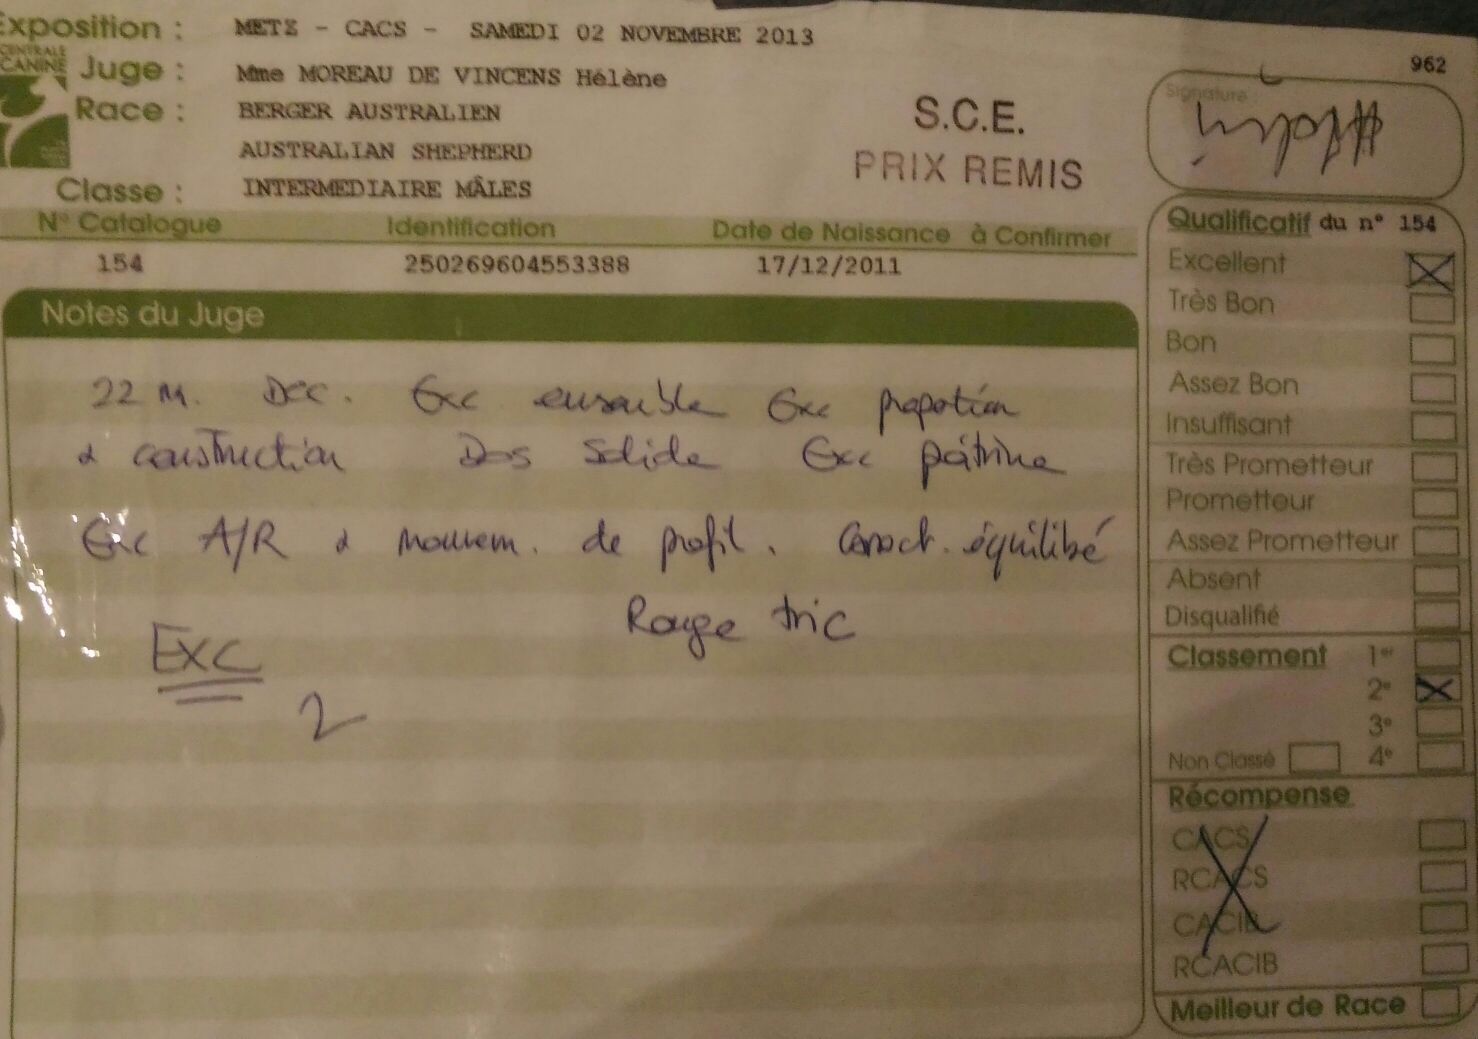 Exposition : METZ - CACS - SAMEDI 02 NOVEMBRE 2013
CENTRALE
CANINE
Juge : Mme MOREAU DE VINCENS Hélène
962
Race : BERGER AUSTRALIEN
AUSTRALIAN SHEPHERD
Classe : INTERMEDIAIRE MÂLES
S.C.E.
PRIX REMIS
Signature :
N° Catalogue Identification Date de Naissance à Confirmer
154 250269604553388 17/12/2011
Notes du Juge
22 M. Dec. Exc ensemble Exc propotion
& construction Dos Solide Exc poitrine
Exc A/R & mouvem. de profil. Caract. équilibé
Rouge tric
Exc
2
Qualificatif du n° 154
Excellent
Très Bon
Bon
Assez Bon
Insuffisant
Très Prometteur
Prometteur
Assez Prometteur
Absent
Disqualifié
Classement 1er
2e
3e
Non Classé 4e
Récompense
CACS
RCACS
CACIB
RCACIB
Meilleur de Race